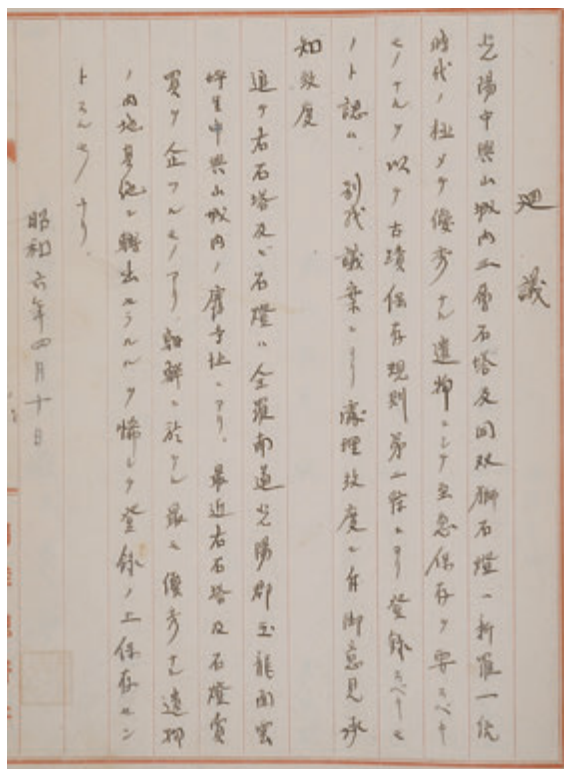 廻議
光陽中興山城内三層石塔及同双獅石燈ハ新羅一統
時代ノ極メテ優秀ナル遺物ニシテ至急保存ヲ要スベキ
モノナルヲ以テ古蹟保存規則第二條ニヨリ登録スベキモ
ノト認ム、別紙議案ニヨリ處理致度ニ付御意見承
知致度
追テ右石塔及ビ石燈ハ全羅南道光陽郡玉龍面雲
坪里中興山城内ノ廃寺址ニアリ、最近右石塔及石燈賣
買ヲ企ツルモノアリ朝鮮ニ於ケル最モ優秀ナル遺物
ノ内地其他ニ轉出セラルルヲ怖レテ登録ノ上保存セン
トスルモノナリ、
昭和六年四月十日